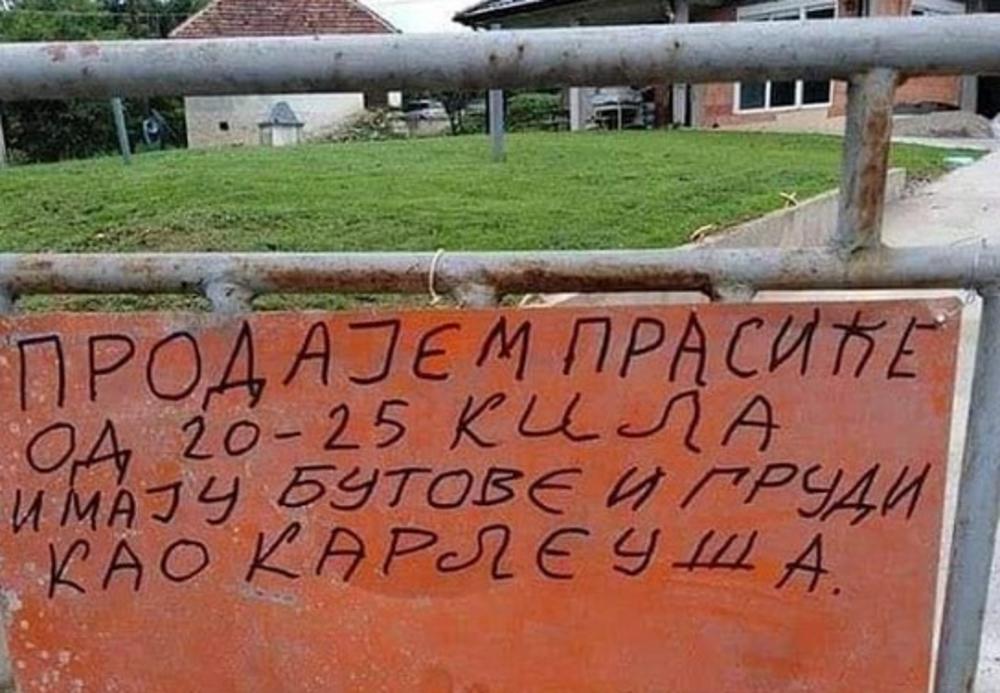 ПРОДАЈЕМ ПРАСИЋЕ
ОД 20-25 КИЛА
ИМАЈУ БУТОВЕ И ГРУДИ
КАО КАРЛЕУША.